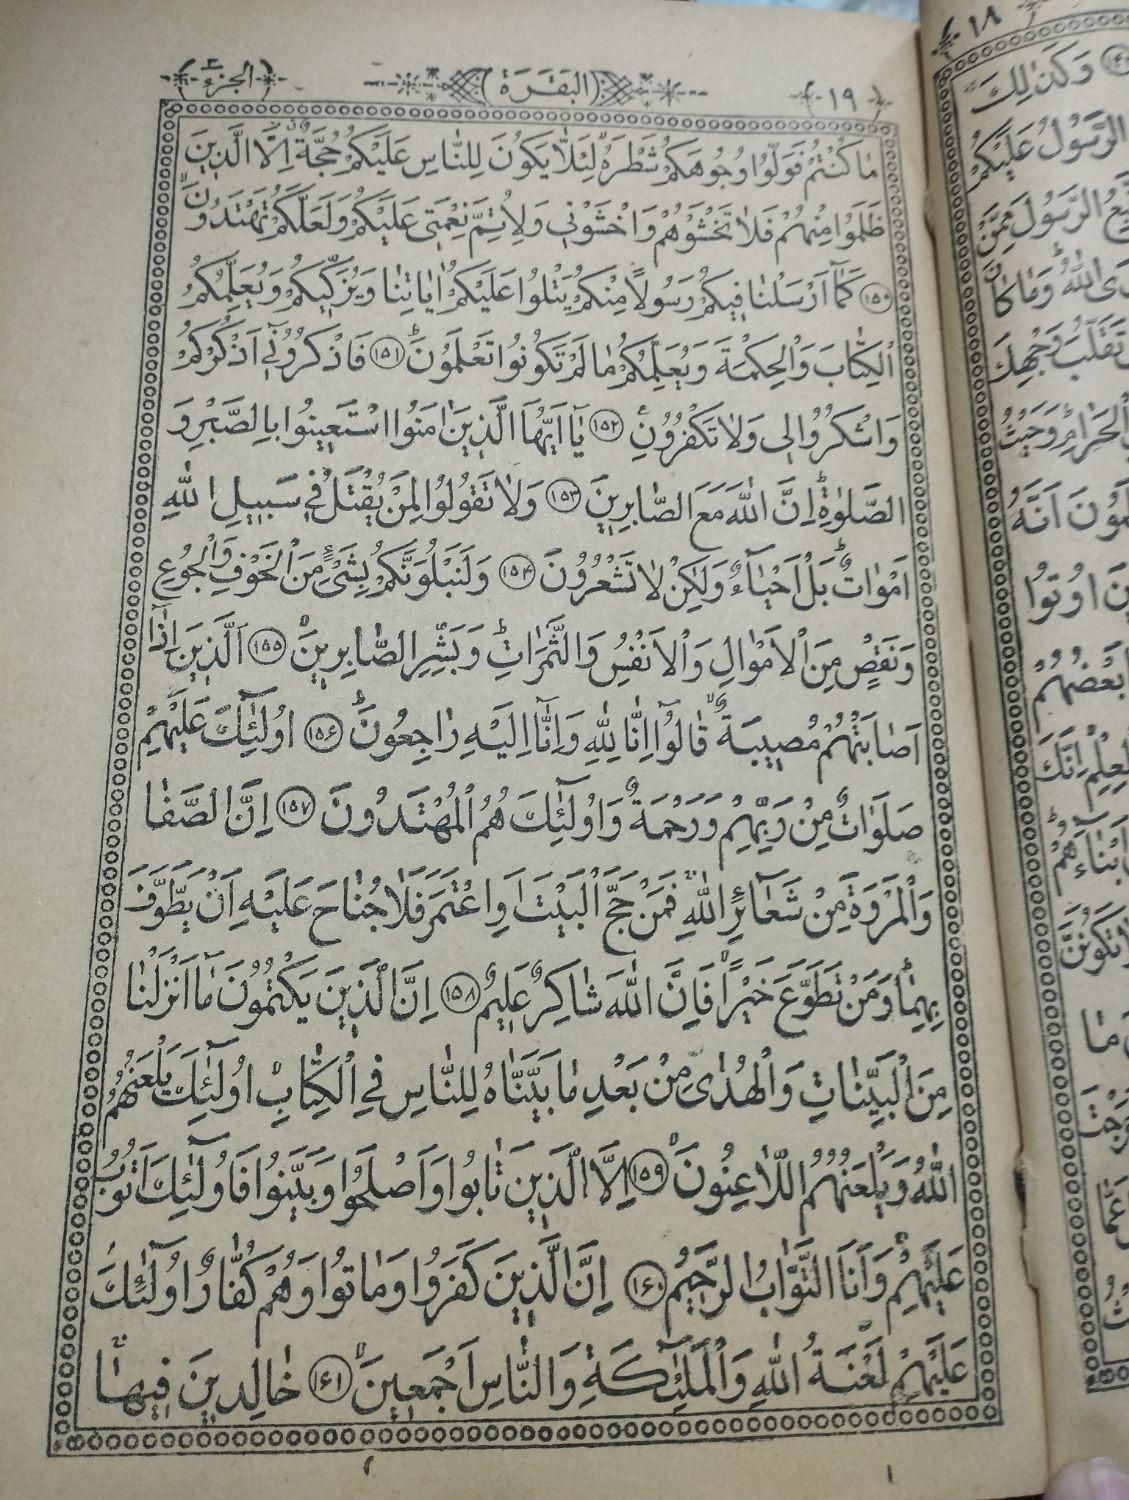 الجزء ٢
(البقرة)
١٩
مَا كُنْتُمْ فَوَلُّوا وُجُوهَكُمْ شَطْرَهُ لِئَلَّا يَكُونَ لِلنَّاسِ عَلَيْكُمْ حُجَّةٌ اِلَّا الَّذِينَ
ظَلَمُوا مِنْهُمْ فَلَا تَخْشَوْهُمْ وَاخْشَوْنِي وَلِاُتِمَّ نِعْمَتِي عَلَيْكُمْ وَلَعَلَّكُمْ تَهْتَدُونَ
﴿١٥٠﴾ كَمَآ اَرْسَلْنَا فِيكُمْ رَسُولًا مِنْكُمْ يَتْلُوا عَلَيْكُمْ اٰيَاتِنَا وَيُزَكِّيكُمْ وَيُعَلِّمُكُمُ
الْكِتَابَ وَالْحِكْمَةَ وَيُعَلِّمُكُمْ مَا لَمْ تَكُونُوا تَعْلَمُونَ ﴿١٥١﴾ فَاذْكُرُونِٓي اَذْكُرْكُمْ
وَاشْكُرُوا لِي وَلَا تَكْفُرُونِ ﴿١٥٢﴾ يَآ اَيُّهَا الَّذِينَ اٰمَنُوا اسْتَعِينُوا بِالصَّبْرِ وَ
الصَّلٰوةِ اِنَّ اللّٰهَ مَعَ الصَّابِرِينَ ﴿١٥٣﴾ وَلَا تَقُولُوا لِمَنْ يُقْتَلُ فِي سَبِيلِ اللّٰهِ
اَمْوَاتٌ بَلْ اَحْيَآءٌ وَلٰكِنْ لَا تَشْعُرُونَ ﴿١٥٤﴾ وَلَنَبْلُوَنَّكُمْ بِشَيْءٍ مِنَ الْخَوْفِ وَالْجُوعِ
وَنَقْصٍ مِنَ الْاَمْوَالِ وَالْاَنْفُسِ وَالثَّمَرَاتِ وَبَشِّرِ الصَّابِرِينَ ﴿١٥٥﴾ اَلَّذِينَ اِذَآ
اَصَابَتْهُمْ مُصِيبَةٌ قَالُوٓا اِنَّا لِلّٰهِ وَاِنَّآ اِلَيْهِ رَاجِعُونَ ﴿١٥٦﴾ اُولٰٓئِكَ عَلَيْهِمْ
صَلَوَاتٌ مِنْ رَبِّهِمْ وَرَحْمَةٌ وَاُولٰٓئِكَ هُمُ الْمُهْتَدُونَ ﴿١٥٧﴾ اِنَّ الصَّفَا
وَالْمَرْوَةَ مِنْ شَعَآئِرِ اللّٰهِ فَمَنْ حَجَّ الْبَيْتَ اَوِ اعْتَمَرَ فَلَا جُنَاحَ عَلَيْهِ اَنْ يَطَّوَّفَ
بِهِمَا وَمَنْ تَطَوَّعَ خَيْرًا فَاِنَّ اللّٰهَ شَاكِرٌ عَلِيمٌ ﴿١٥٨﴾ اِنَّ الَّذِينَ يَكْتُمُونَ مَآ اَنْزَلْنَا
مِنَ الْبَيِّنَاتِ وَالْهُدٰى مِنْ بَعْدِ مَا بَيَّنَّاهُ لِلنَّاسِ فِي الْكِتَابِ اُولٰٓئِكَ يَلْعَنُهُمُ
اللّٰهُ وَيَلْعَنُهُمُ اللَّاعِنُونَ ﴿١٥٩﴾ اِلَّا الَّذِينَ تَابُوا وَاَصْلَحُوا وَبَيَّنُوا فَاُولٰٓئِكَ اَتُوبُ
عَلَيْهِمْ وَاَنَا التَّوَّابُ الرَّحِيمُ ﴿١٦٠﴾ اِنَّ الَّذِينَ كَفَرُوا وَمَاتُوا وَهُمْ كُفَّارٌ اُولٰٓئِكَ
عَلَيْهِمْ لَعْنَةُ اللّٰهِ وَالْمَلٰٓئِكَةِ وَالنَّاسِ اَجْمَعِينَ ﴿١٦١﴾ خَالِدِينَ فِيهَا
١٨
وَكَذٰلِكَ
الرَّسُولُ عَلَيْكُمْ
الرَّسُولَ مِمَّنْ
اللّٰهُ وَمَا كَانَ
تَقَلُّبَ وَجْهِكَ
الْحَرَامِ وَحَيْثُ
اَنَّهُ
اُوتُوا
بَعْضُهُمْ
الْعِلْمِ اِنَّكَ
اَبْنَآءَهُمْ
تَكُونَنَّ
مَا